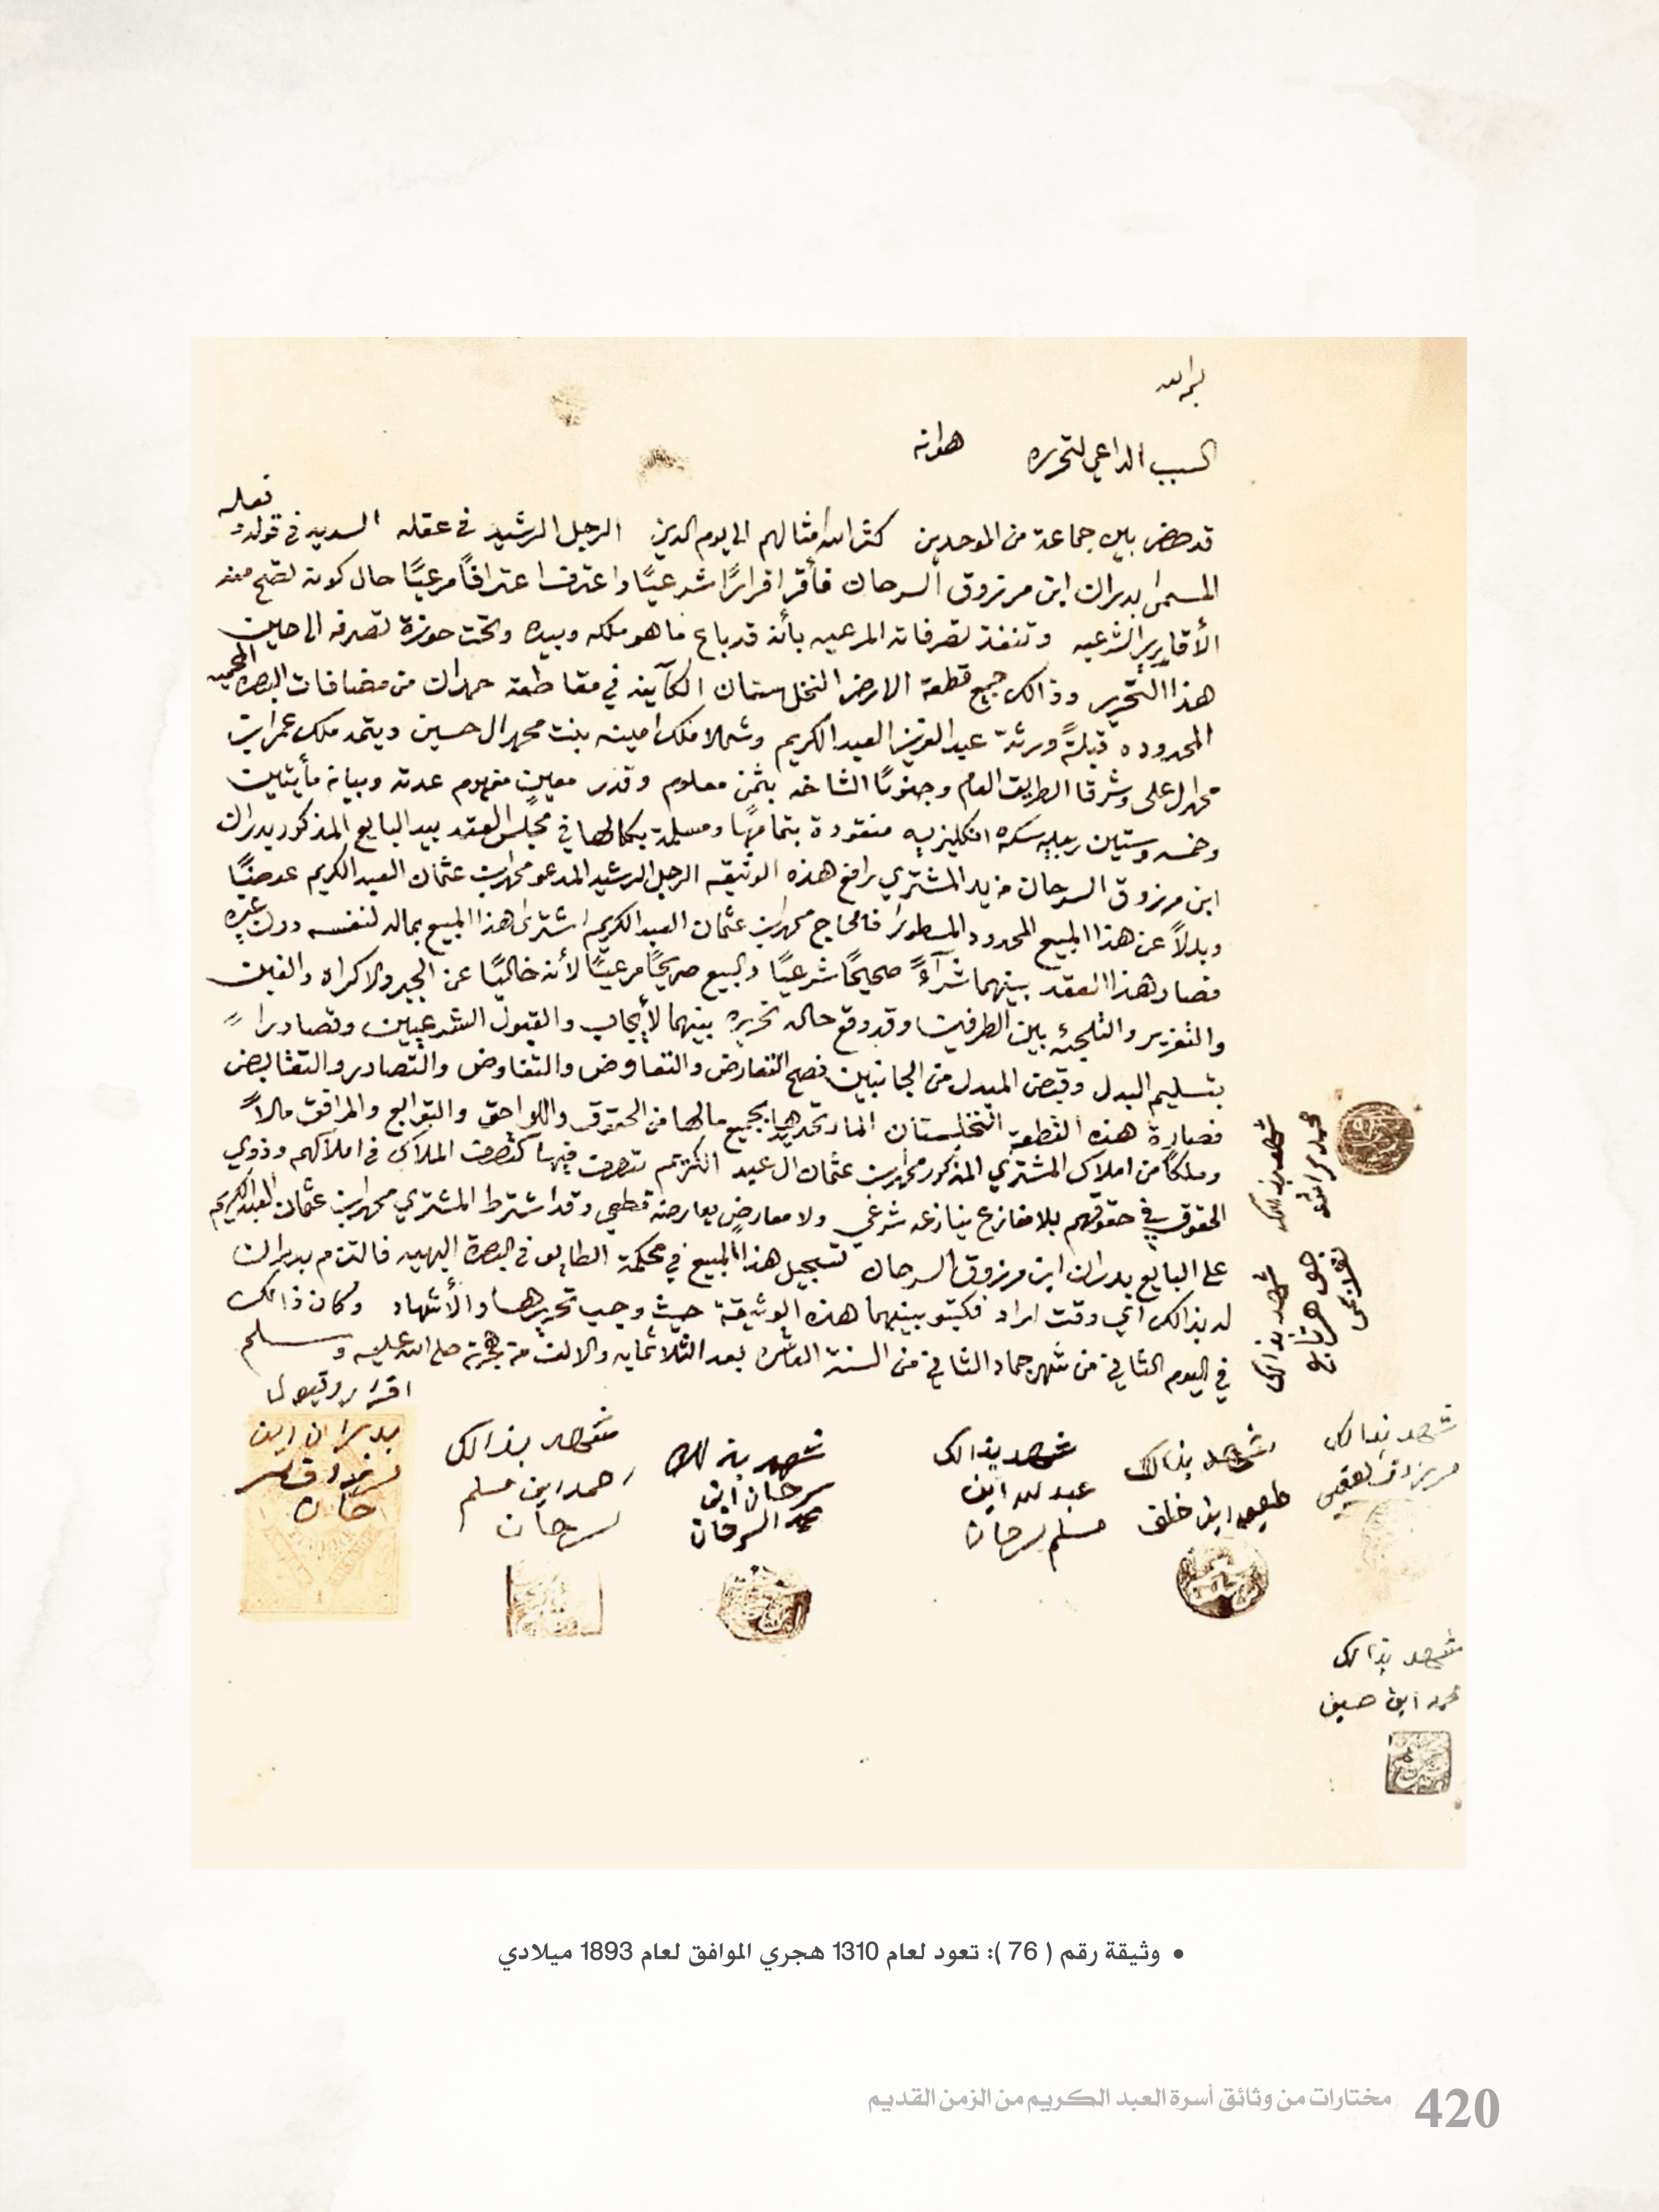 بسم الله
السبب الداعي لتحريره هو انه
قد حضر بين جماعة من الموحدين كثر الله امثالهم الى يوم الدين الرجل الرشيد في عقله السديد في قوله وفعله
المسمى بدران ابن مرزوق السرحان فأقر اقرارًا شرعيًا واعترف اعترافًا مرعيًا حال كونه تصح منه
الأقارير الشرعيه وتنفذ تصرفاته المرعيه بأنه قد باع ما هو ملكه وبيده وتحت حوزة تصرفه الى حين
هذا التحرير وذالك جميع قطعة الارض النخلستان الكآينه في مقاطعة حمدان من مضافات البصره المحميه
المحدوده قبلةً ورثة عبد العزيز العبد الكريم وشمالا ملك امينه بنت محمد ال حسين ويتمه ملك عمر ابن
محمد ال على وشرقا الطريق العام وجنوبًا الشاخه بثمن معلوم وقدر معين مفهوم عدته وبيانه مأيتين
وخمسه وستين ربيه سكه انكليزيه منقودة بتمامها ومسلمة بكمالها في مجلس العقد بيد البايع المذكور بدران
ابن مرزوق السرحان من يد المشتري رافع هذه الوثيقه الرجل الرشيد المدعو محمد ابن عثمان العبد الكريم عوضًا
وبدلاً عن هذا المبيع المحدود المسطور محمد ابن عثمان العبد الكريم اشترى هذا المبيع بماله لنفسه دون غيره
فصار هذا العقد بينهما شرآءً صحيحًا شرعيًا والبيع صريحًا مرعيًا لأنه خاليًا عن الجبر والاكراه والغبن
والتغزير والتلجئه بين الطرفين وقد وقع حال تحريره بينهما لأيجاب والقبول الشرعيين وتصادرا
بتسليم البدل وقبض المبدل من الجانبين فصح التعارض والتفاوض والتصادر والتقابض
فصارة هذه القطعة النخلستان المار تحديدها بجميع مالها من الحقوق واللواحق والتوابع والمرافق مالاً
وملكًا من املاك المشتري المذكور محمد ابن عثمان ال عبد الكريم يتصرف فيها كتصرف الملاك في املاكهم وذوي
الحقوق في حقوقهم بلا منازع ينازعه شرعي ولا معارض يعارضه قطعي وقد اشترط المشتري محمد ابن عثمان العبد الكريم
على البايع بدران ابن مرزوق السرحان تسجيل هذا المبيع في محكمة الطابو في البصرة البهيه فالتزم بدران
له بذالك اي وقت اراد فكتبو بينهما هذه الوثيقة حيث وجب تحريرها والأشهاد وكان ذالك
في اليوم الثاني من شهر جماد الثاني من السنة العاشره بعد الثلاثمايه والالف من هجرة صلى الله عليه وسلم
اقرار وقبول
بدران ابن
مرزوق السر
حان
شهد بذالك
احمد ابن مسلم
سرحان
شهد بذالك
سرحان ابن
محمد السرحان
شهد بذالك
عبد لله ابن
مسلم سرحان
شهد بذالك
ابن خلف
شهد بذالك
مرزوق
شهد بذالك
محمد ابن حسين
شهد بذالك
شهد بذالك
• وثيقة رقم ( 76 ): تعود لعام 1310 هجري الموافق لعام 1893 ميلادي
420 مختارات من وثائق أسرة العبد الكريم من الزمن القديم